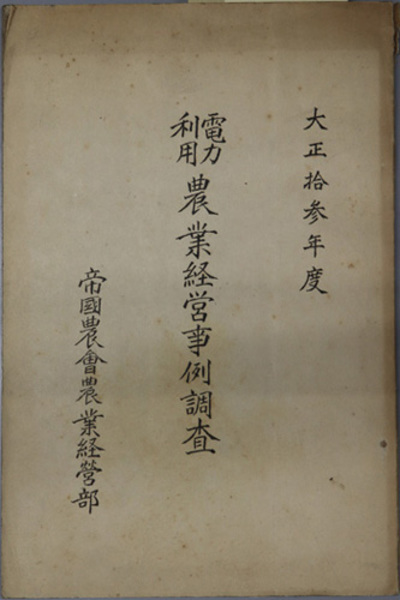 大正拾参年度
電力利用農業経営事例調査
帝國農會農業経營部